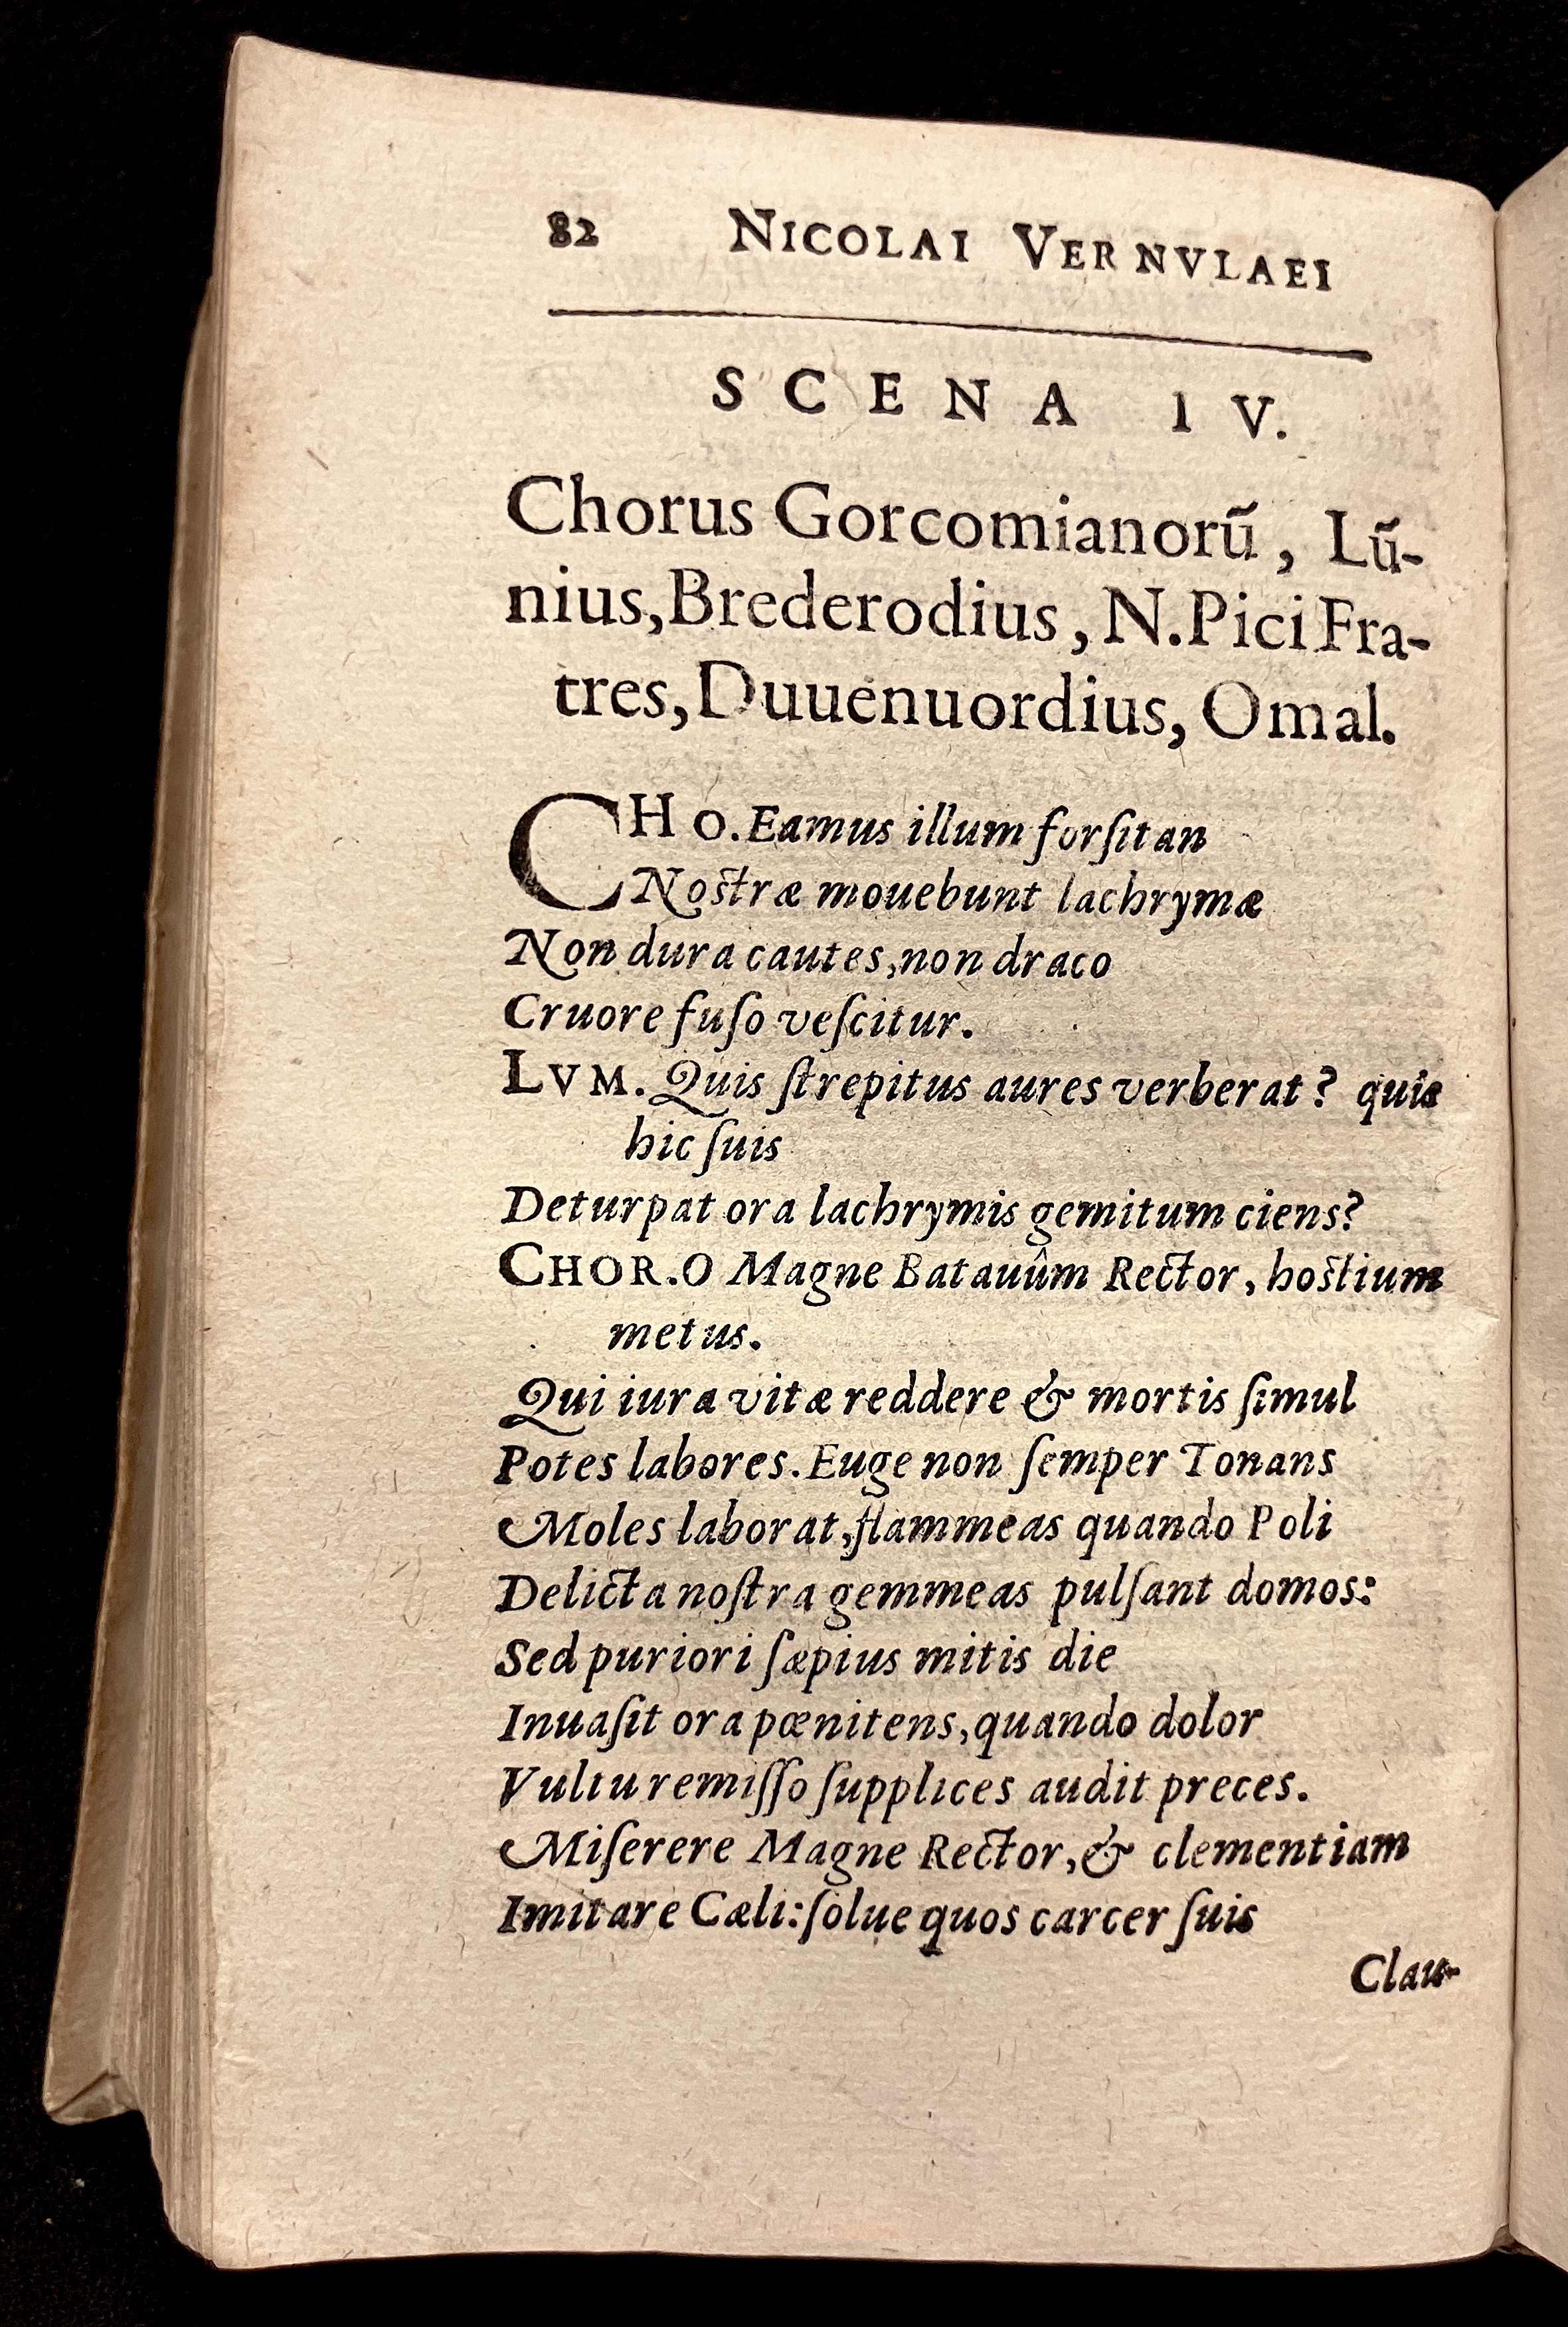 82 NICOLAI VERNVLAEI
SCENA IV.
Chorus Gorcomianorũ, Lũ-
nius, Brederodius, N. Pici Fra-
tres, Duuenuordius, Omal.
CHO. Eamus illum forſitan
Noſtræ mouebunt lachrymæ
Non dura cautes, non draco
Cruore fuſo veſcitur.
LVM. Quis ſtrepitus aures verberat? quis
hic ſuis
Deturpat ora lachrymis gemitum ciens?
CHOR. O Magne Batauûm Rector, hoſtium
metus.
Qui iura vitæ reddere & mortis ſimul
Potes labores. Euge non ſemper Tonans
Moles laborat, flammeas quando Poli
Delicta noſtra gemmeas pulſant domos:
Sed puriori ſæpius mitis die
Inuaſit ora pœnitens, quando dolor
Vultu remiſſo ſupplices audit preces.
Miſerere Magne Rector, & clementiam
Imitare Cæli: ſolue quos carcer ſuis
Clau-